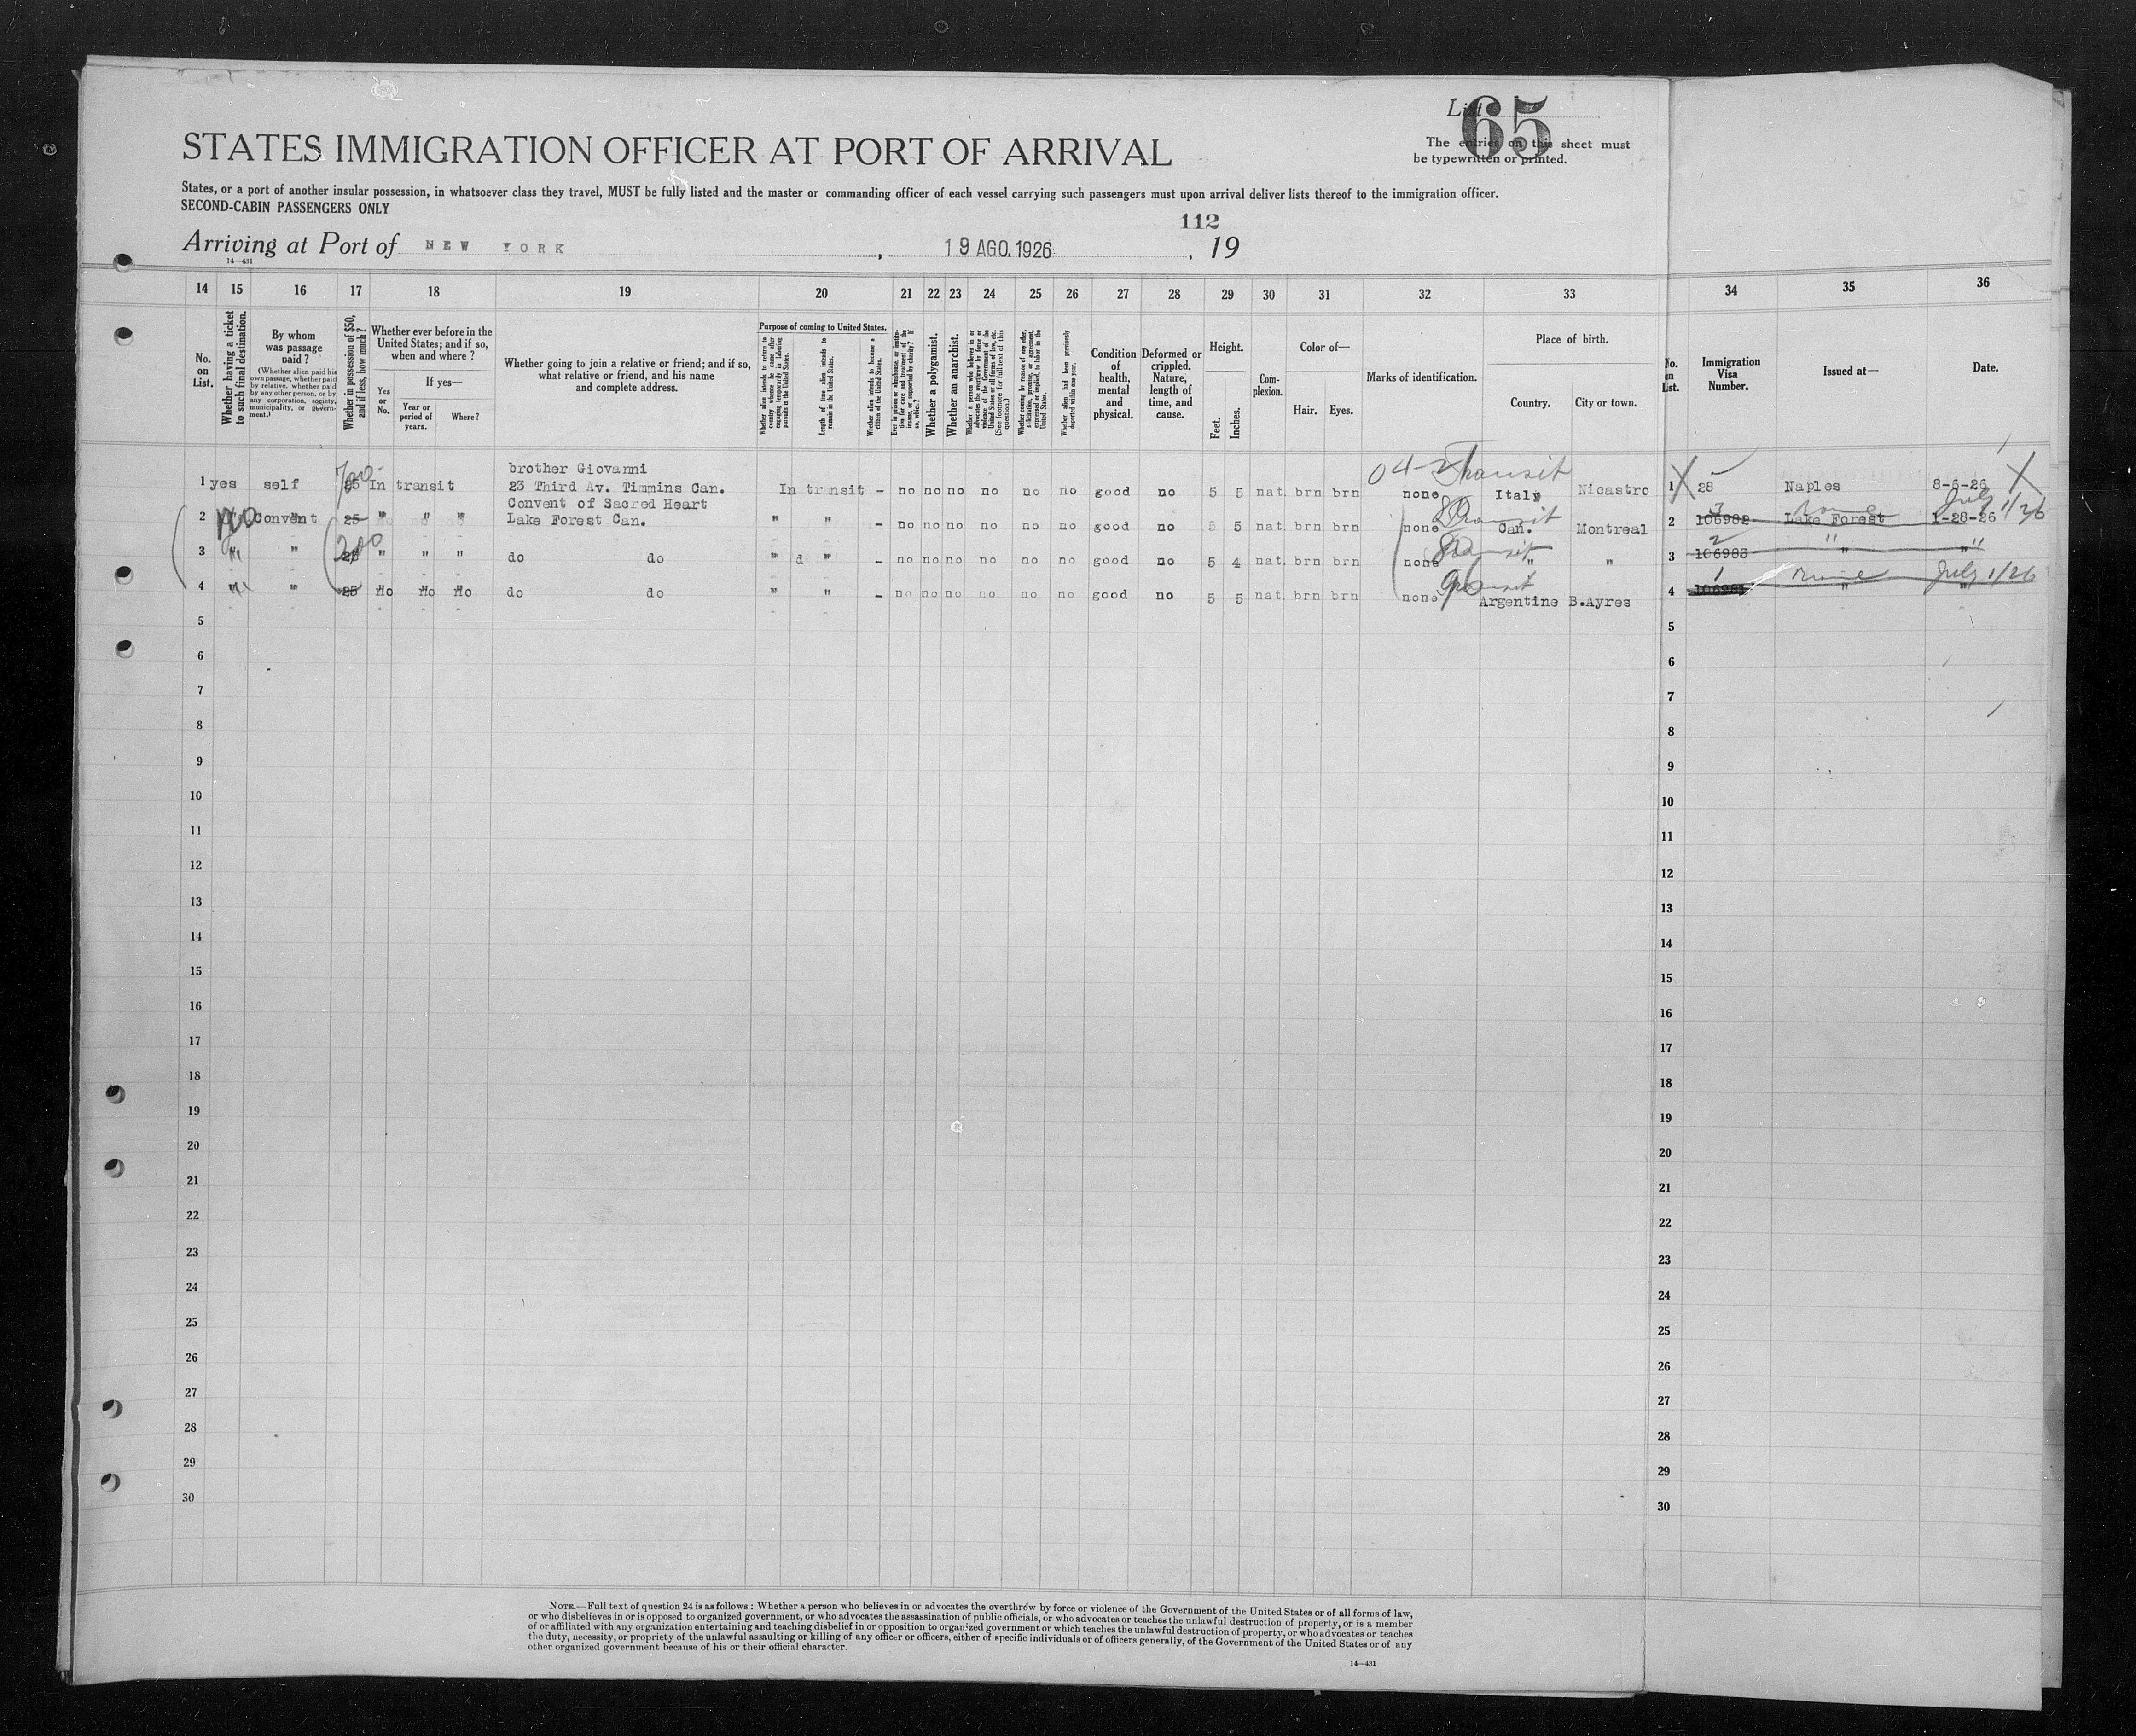 List 65
STATES IMMIGRATION OFFICER AT PORT OF ARRIVAL
The entries on this sheet must
be typewritten or printed.
States, or a port of another insular possession, in whatsoever class they travel, MUST be fully listed and the master or commanding officer of each vessel carrying such passengers must upon arrival deliver lists thereof to the immigration officer.
SECOND-CABIN PASSENGERS ONLY
112
Arriving at Port of NEW YORK, 19 AGO. 1926. , 19
14—431
14 15 16 17 18 19 20 21 22 23 24 25 26 27 28 29 30 31 32 33 34 35 36
No. on List.
Whether having a ticket to such final destination.
By whom was passage paid?
(Whether alien paid his own passage, whether paid by relative, whether paid by any other person, or by any corporation, society, municipality, or government.)
Whether in possession of $50, and if less, how much?
Whether ever before in the United States; and if so, when and where?
Yes or No.
If yes—
Year or period of years.
Where?
Whether going to join a relative or friend; and if so, what relative or friend, and his name and complete address.
Purpose of coming to United States.
Whether alien intends to return to country whence he came after engaging temporarily in laboring pursuits in the United States.
Length of time alien intends to remain in the United States.
Whether alien intends to become a citizen of the United States.
Ever in prison or almshouse, or institution for care and treatment of the insane, or supported by charity? If so, which?
Whether a polygamist.
Whether an anarchist.
Whether a person who believes in or advocates the overthrow by force or violence of the Government of the United States or all forms of law, etc. (See footnote for full text of this question.)
Whether coming by reason of any offer, solicitation, promise, or agreement, expressed or implied, to labor in the United States.
Whether alien had been previously deported within one year.
Condition of health, mental and physical.
Deformed or crippled. Nature, length of time, and cause.
Height.
Feet. Inches.
Complexion.
Color of—
Hair. Eyes.
Marks of identification.
Place of birth.
Country. City or town.
No. on List.
Immigration Visa Number.
Issued at—
Date.
brother Giovanni 04-2 Transit
1 yes self 25 In transit 23 Third Av. Timmins Can. In transit - no no no no no no good no 5 5 nat. brn brn none Italy Nicastro 1 28 Naples 8-6-26
Convent of Sacred Heart Transit 3 Rome July 1/26
2 Convent 25 " " " Lake Forest Can. " " - no no no no no no good no 5 5 nat. brn brn none Can. Montreal 2 106982 Lake Forest 1-28-26
200 Transit 2 " "
3 " " " " " do do " d " - no no no no no no good no 5 4 nat. brn brn none " " 3 106983 " "
Transit 1 Rome July 1/26
4 " " 25 No No No do do " " - no no no no no no good no 5 5 nat. brn brn none Argentine B.Ayres 4 " "
5 5
6 6
7 7
8 8
9 9
10 10
11 11
12 12
13 13
14 14
15 15
16 16
17 17
18 18
19 19
20 20
21 21
22 22
23 23
24 24
25 25
26 26
27 27
28 28
29 29
30 30
NOTE.—Full text of question 24 is as follows: Whether a person who believes in or advocates the overthrow by force or violence of the Government of the United States or of all forms of law,
or who disbelieves in or is opposed to organized government, or who advocates the assassination of public officials, or who advocates or teaches the unlawful destruction of property, or is a member
of or affiliated with any organization entertaining and teaching disbelief in or opposition to organized government or which teaches the unlawful destruction of property, or who advocates or teaches
the duty, necessity, or propriety of the unlawful assaulting or killing of any officer or officers, either of specific individuals or of officers generally, of the Government of the United States or of any
other organized government because of his or their official character.
14—431